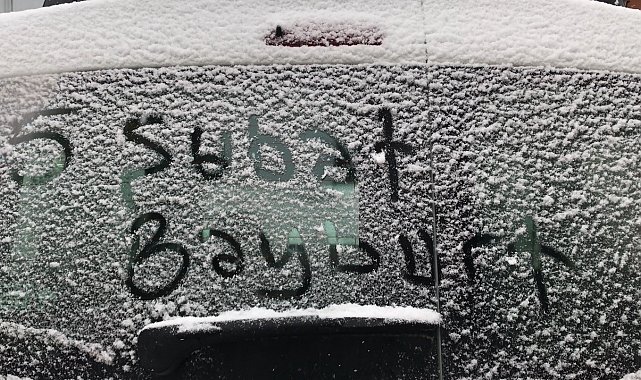 5 Şubat
Bayburt